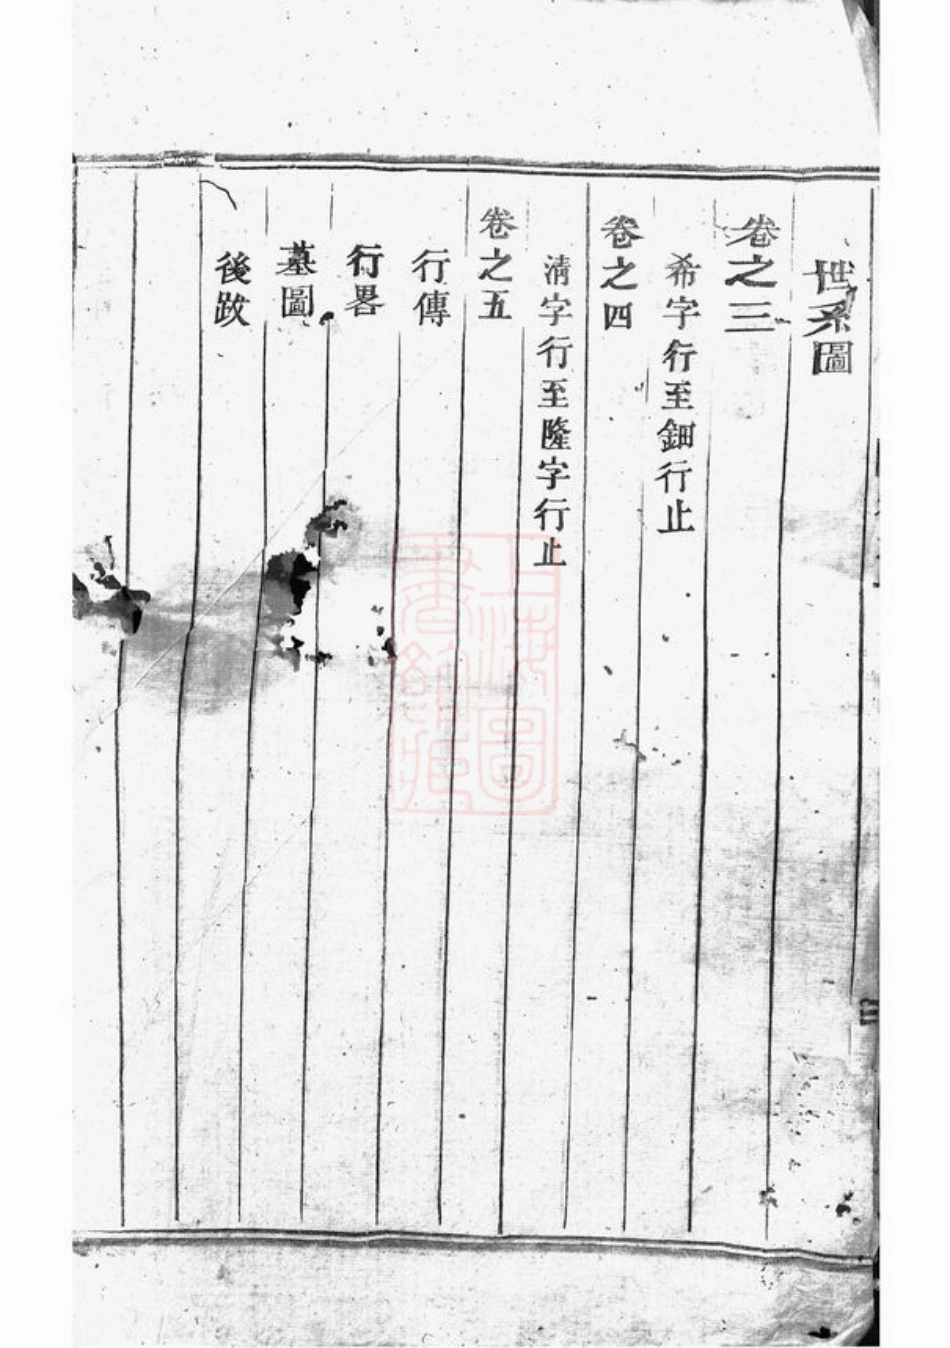 世系圖
卷之三
希字行至鈿行止
卷之四
清字行至隆字行止
卷之五
行傳
行畧
墓圖
後跋
上海圖
書館藏